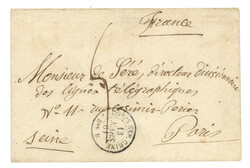 France
Monsieur de Séré, directeur divisionnaire
des lignes télégraphiques
N° 11 rue Casimir Perier
Paris
Seine
CHINE
13